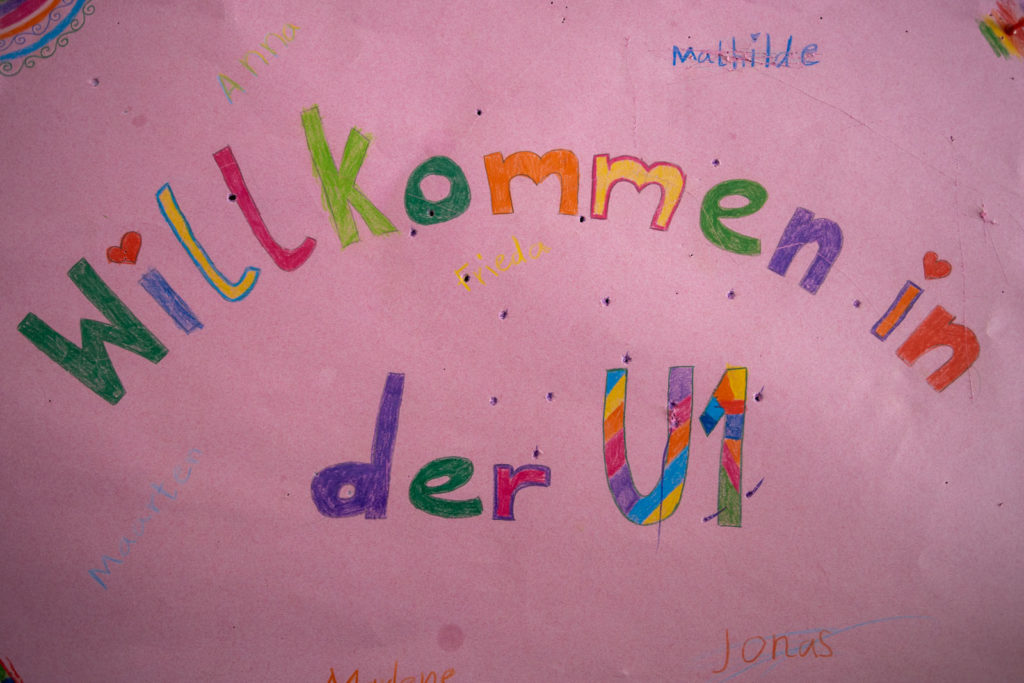 Anna
Mathilde
Willkommen in
Frieda
der U1
Jonas